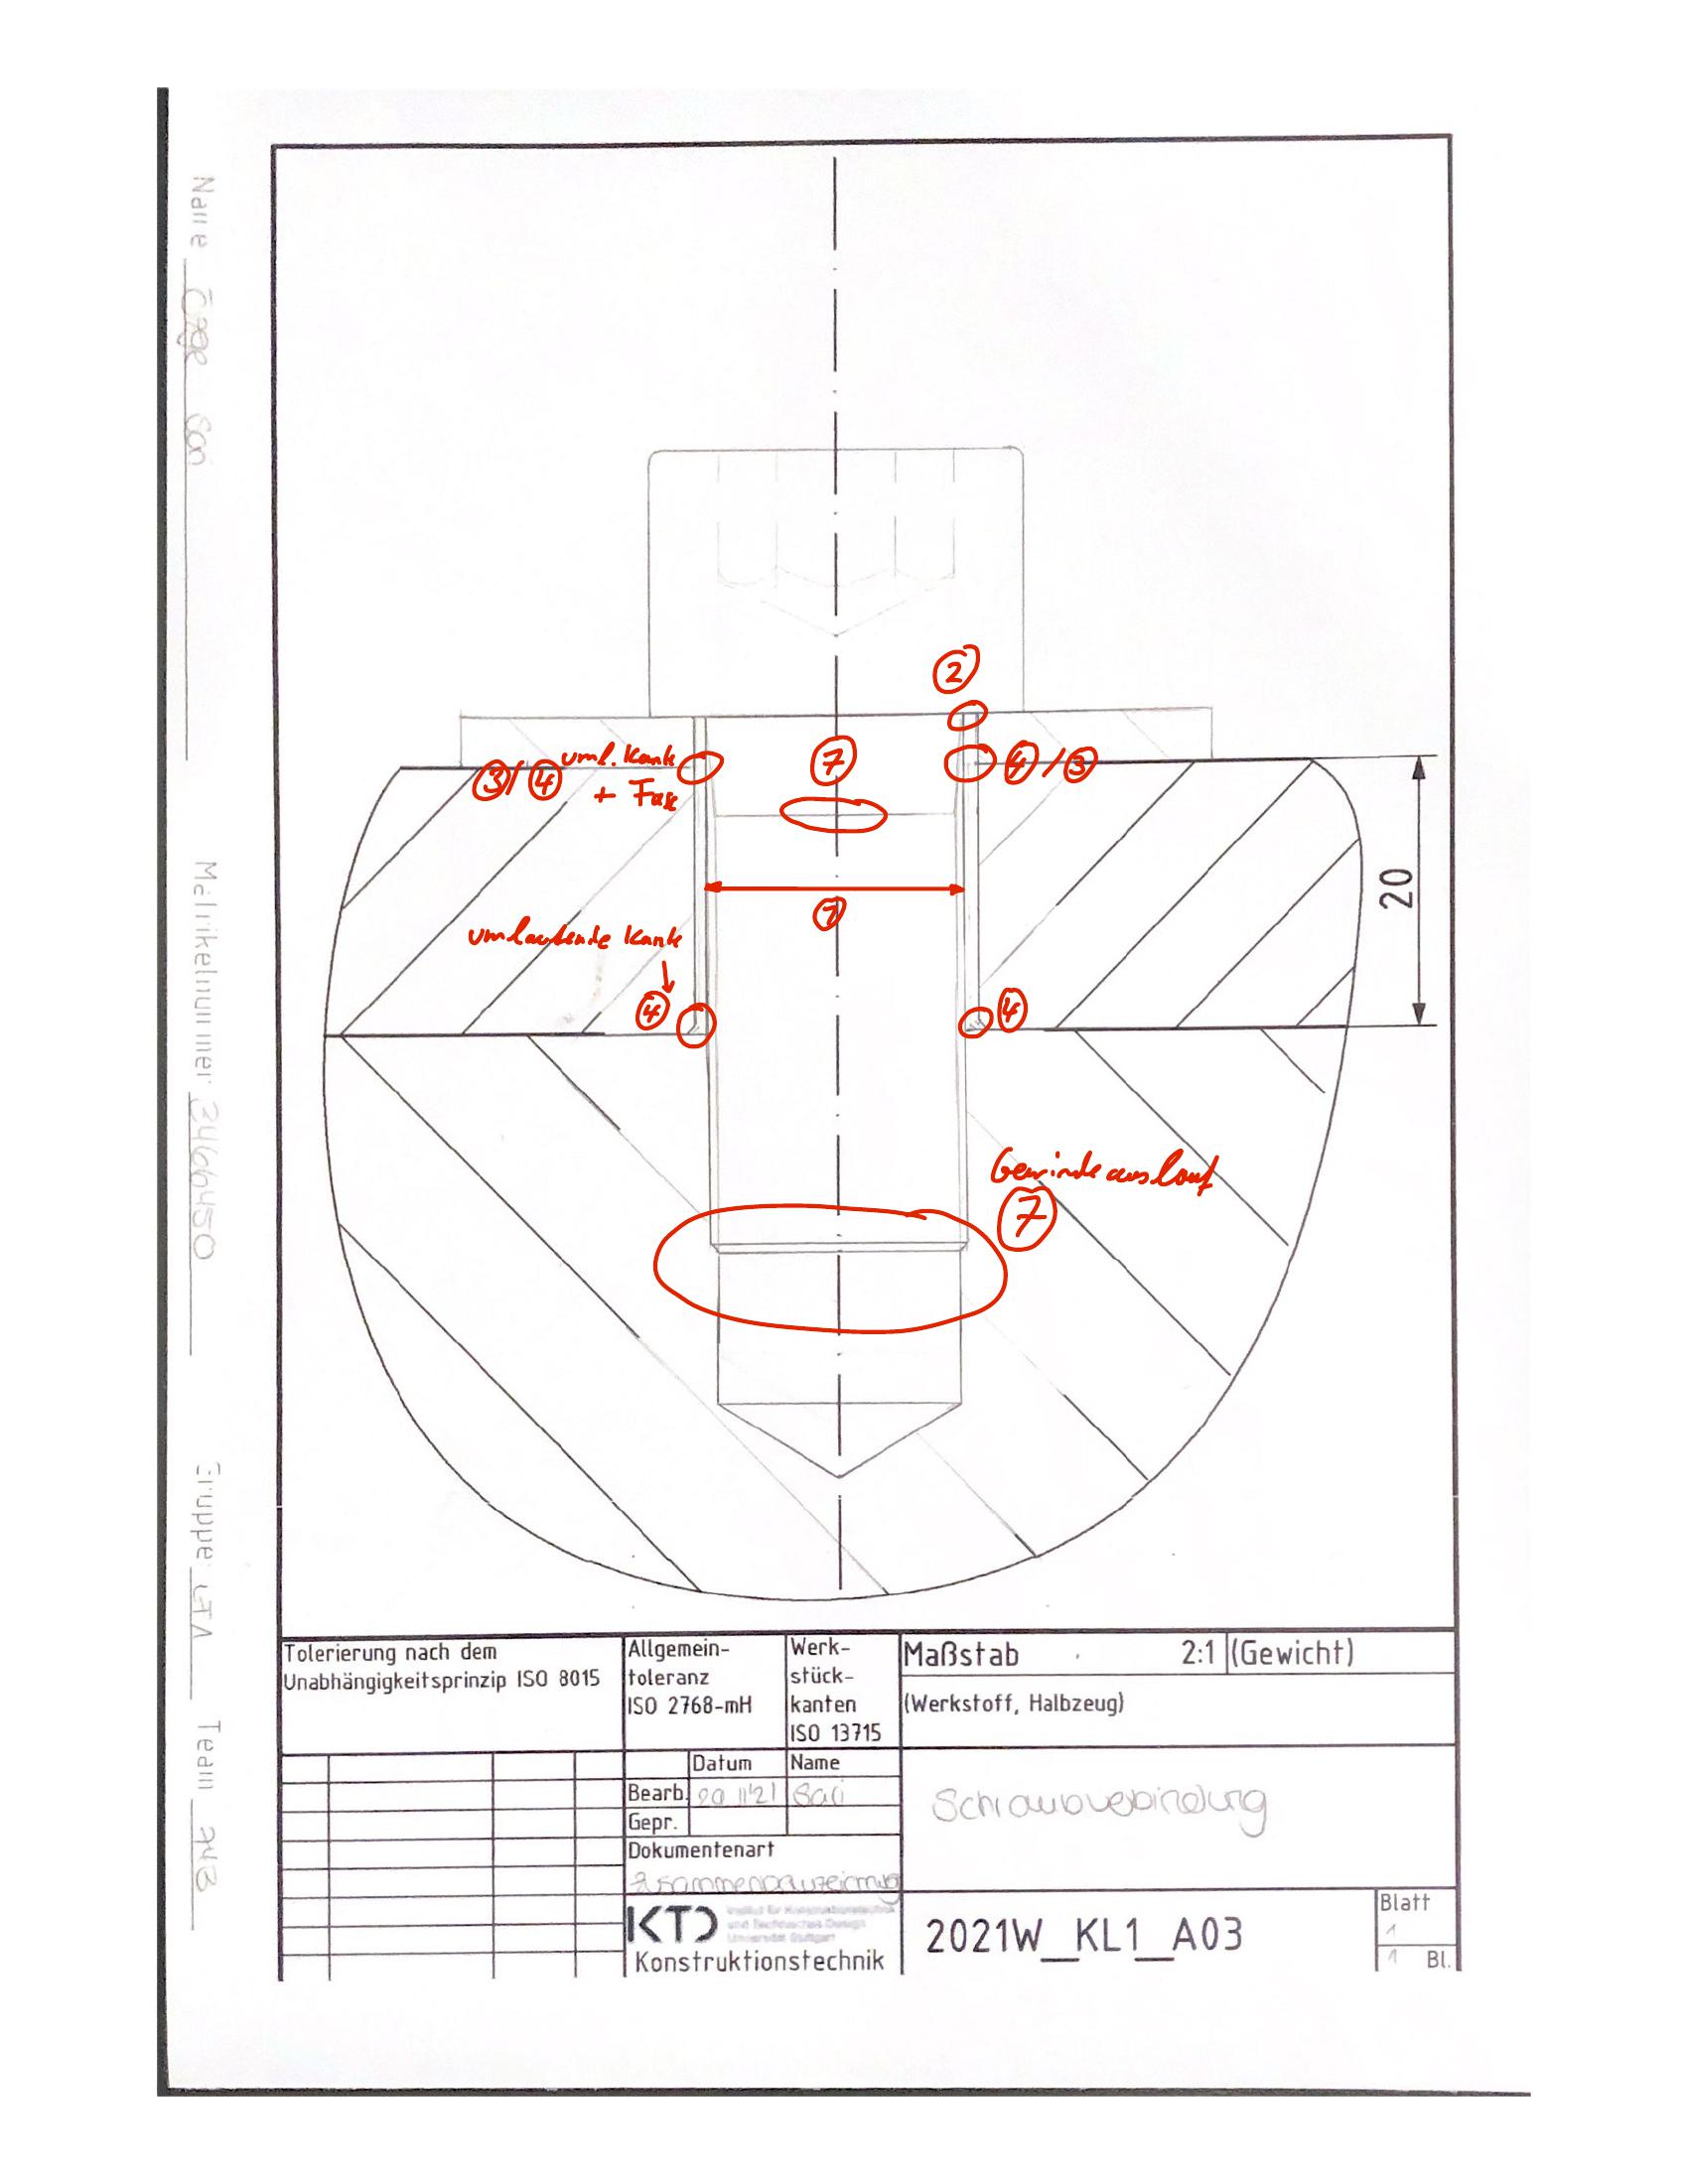 Name Özge Sari
Matrikelnummer 3466450
Gruppe
Team
2
uml. Kante
3/4
+ Fase
7
4/3
20
7
umlaufende Kante
4
4
Gewindeauslauf
7
Tolerierung nach dem
Unabhängigkeitsprinzip ISO 8015
Allgemein-
toleranz
ISO 2768-mH
Werk-
stück-
kanten
ISO 13715
Maßstab 2:1 (Gewicht)
(Werkstoff, Halbzeug)
Datum Name
Bearb. Sari
Gepr.
Dokumentenart
Zusammenbauzeichnung
Schraubverbindung
KTD Institut für Konstruktionstechnik
und Technisches Design
Universität Stuttgart
Konstruktionstechnik
2021W_KL1_A03
Blatt
1
1 Bl.